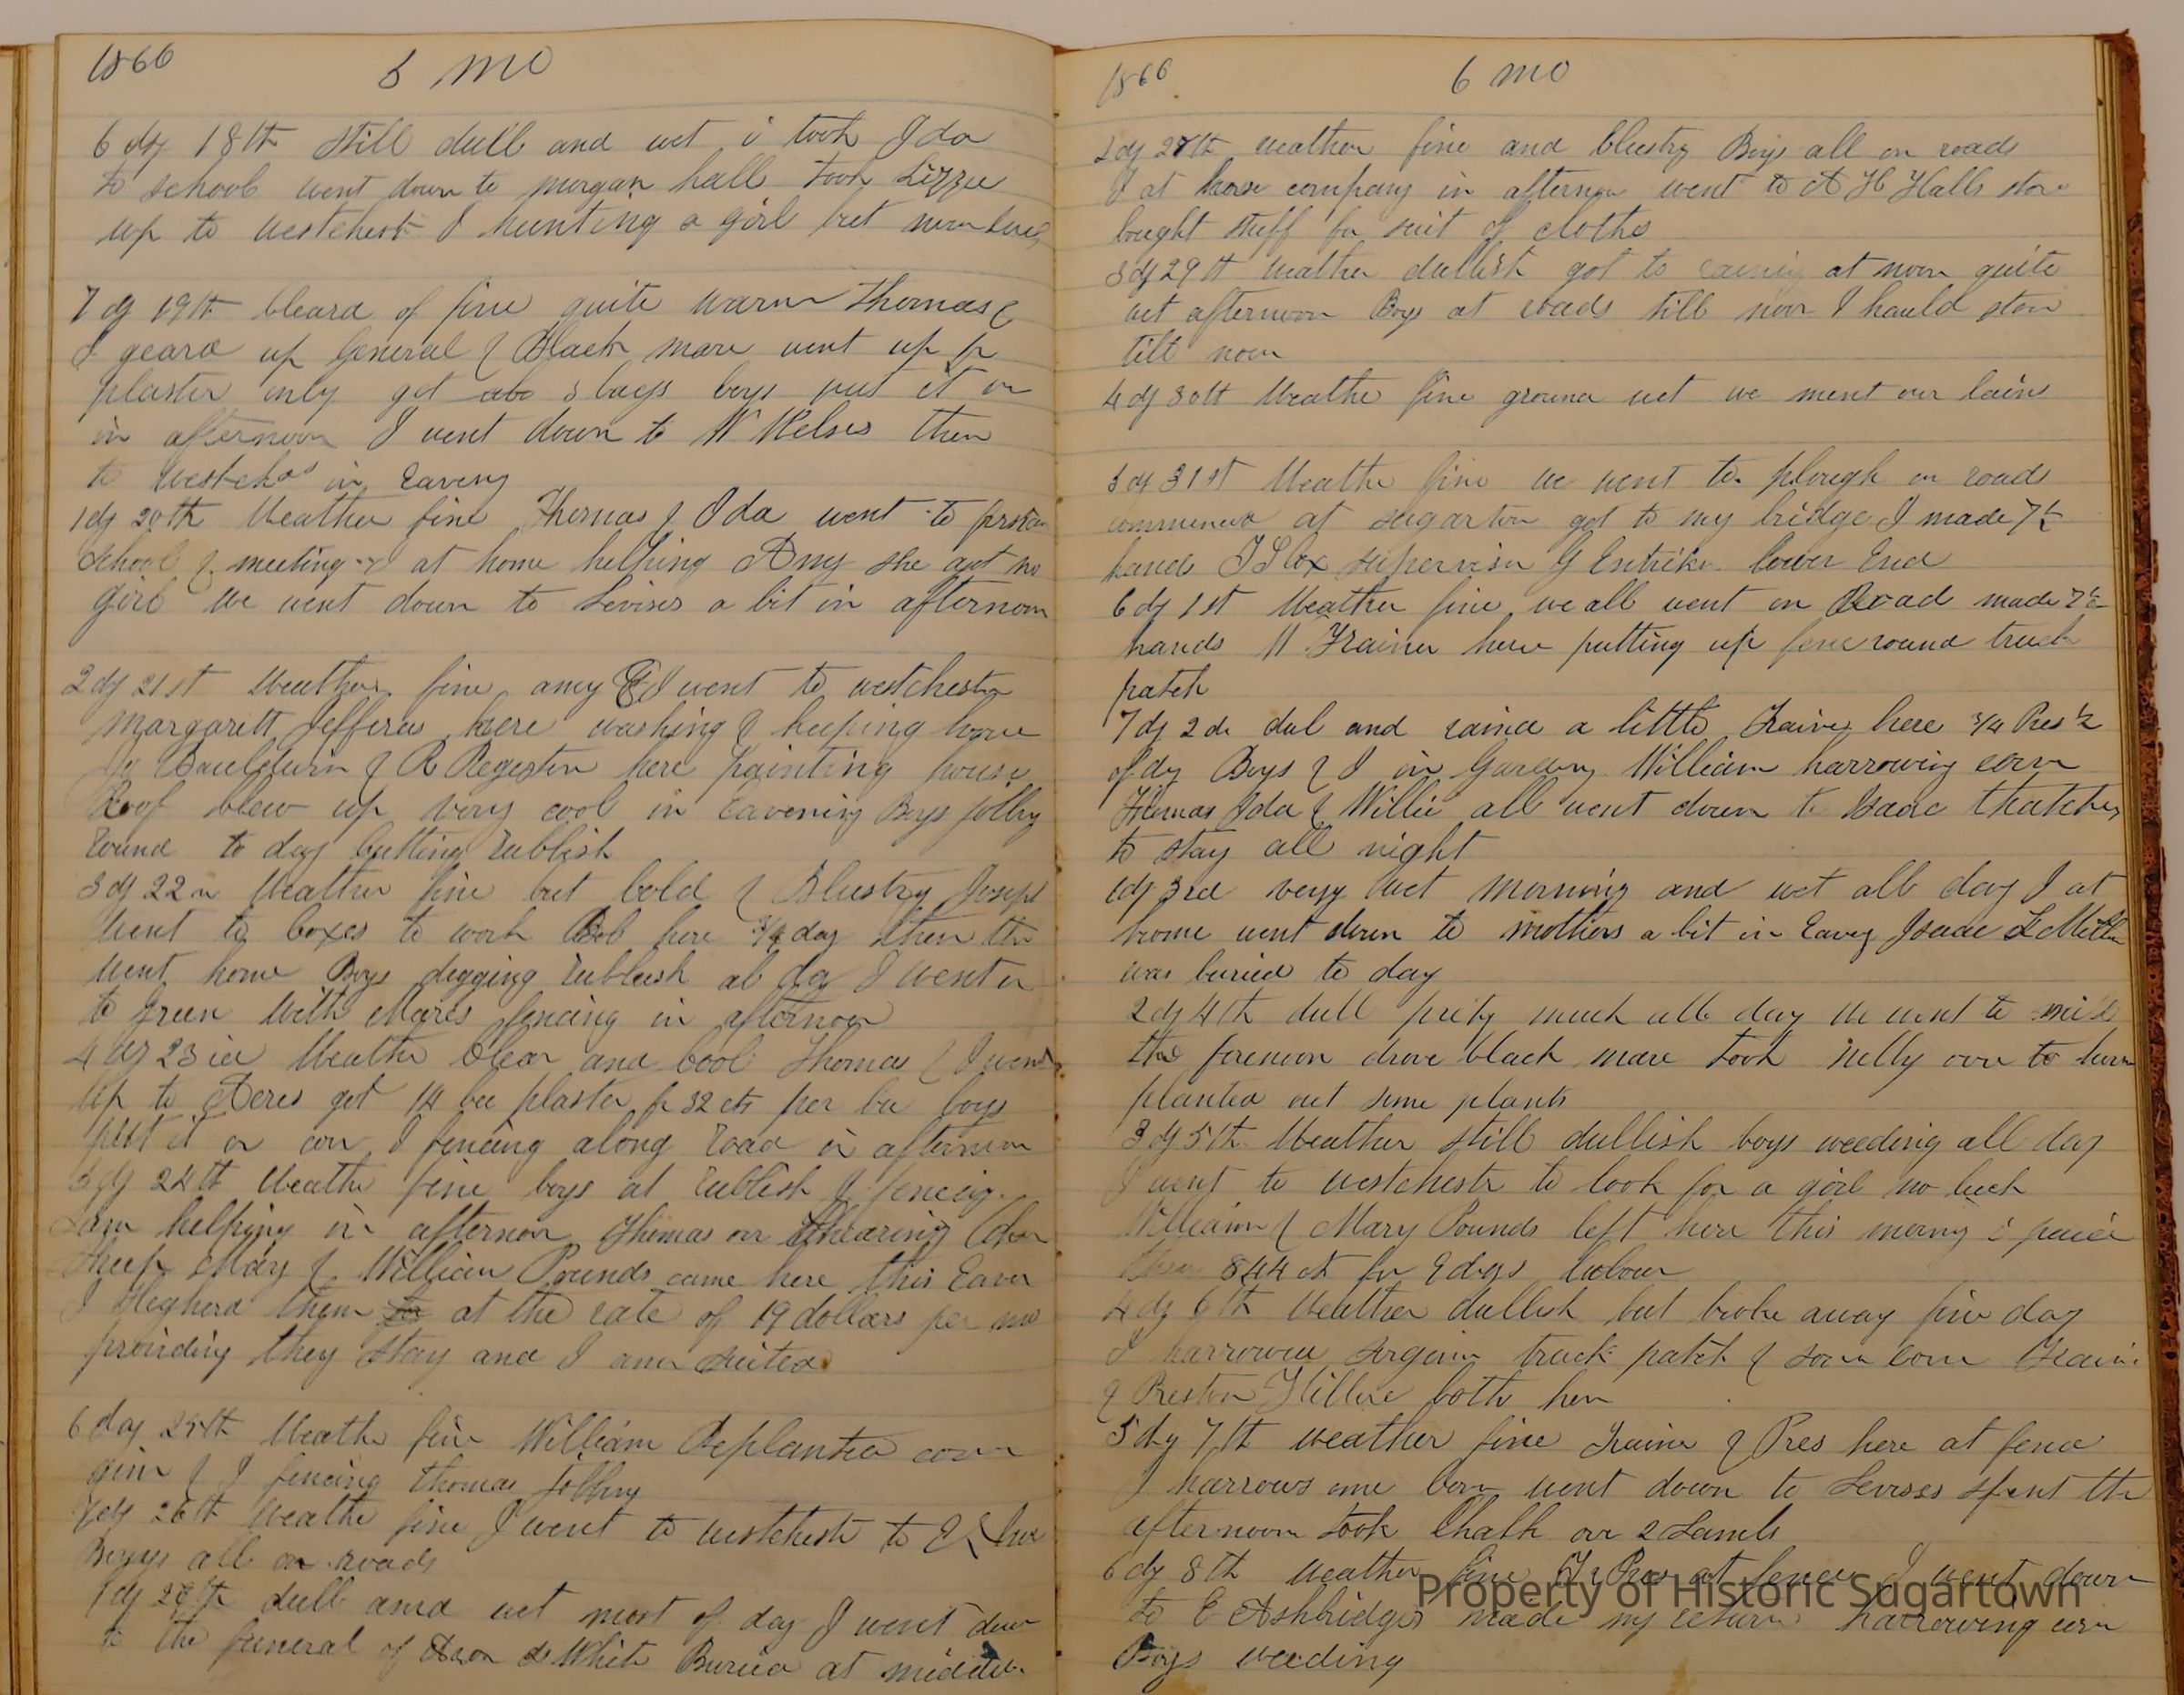 1866 5 mo
6 dy 18th still dull and wet i took Ida
to school went down to morgan hall took Lizzie
up to westchest I hunting a girl but
7 dy 19th Cleard of fine quite warm Thomas &
I geard up General & Black mare went up fr
plaster only got abo 3 bags boys put it on
in afternoon I went down to W Welses then
to in Eaveng
1 dy 20th Weather fine Thomas & Ida went to
School & meeting I at home helping Amy she got no
girl We went down to Levises a bit in afternoon
2 dy 21st Weather fine amy & I went to westchester
Margarett Jefferes here washing & keeping house
& R Regester here painting house
Roof blew up very cool in Eavening Boys jobbing
round to day gutting rublish
3 dy 22n Weather fine but Cold & Blustry Joseph
Went to Coxes to work Bob here 3/4 day then
went home Boys digging rublish al da I went
to Green With Mares fencing in afternoon
4 dy 23rd Weathe Clear and Cool Thomas & I went
up to Aeres got 14 bu plaster fr 32 cts per bu boys
put it on corn I fencing along road in afternoon
5 dy 24th Weathe fine boys at rublish I fencing
Sam helping in afternoon Thomas our Shearing
Sheep Mary & William Pounds came here this Eaven
I them at the rate of 19 dollars per mo
provideing they Stay and I am Suited
6 day 25th Weathe fine William Replanted corn
Jim & I fencing Thomas jobbing
7 dy 26th Weathe fine I went to westcheste to
Boys all on roads
1 dy 27th dull and wet most of day I went down
to the funeral of White Buried at
1866 6 mo
2 dy 28th weather fine and Blustry Boys all on roads
I at horse company in afternoon went to A H Halls store
bought stuff for suit of cloths
3 dy 29th Weather dullish got to raining at noon quite
wet afternoon Boys at roads till noon I hauld ston
till noon
4 dy 30th Weathe fine ground wet we ment our lains
5 dy 31st Weathe fine we went to plough on roads
commencd at sugartown got to my bridge I made 7
hands Cox supervisor G Entriken lower End
6 dy 1st Weather fine we all went on Road made 7
hands W Trainer here putting up fenc round truck
patch
7 dy 2d dul and raind a little Trainer here 3/4 Pres 1/2
of dy Boys & I in Garden William harrowing corn
Thomas Ida & Willie all went down to Isaac Thatchers
to stay all night
1 dy 3rd very wet morning and wet all day I at
home went down to mothers a bit in Eaveng Isaac
was buried to day
2 dy 4th dull prity much all day We went to mill
the forenoon drove black mare took Nelly over to
planted out some plants
3 dy 5th Weather still dullish boys weeding all day
I went to westcheste to look for a girl no luck
William & Mary Pounds left here this morning i paid
them 844 ct for 9 days labour
4 dy 6th Weather dullish but broke away fine day
I harrowed truck patch & som corn
& Preston both here
5 dy 7th weather fine Trainer & Pres here at fence
I harrows ome corn went down to Levises spent the
afternoon took Chalk our 2 Lambs
6 dy 8th Weather fine Tr & Pres at fence I went down
to E Ashbridges made my return harrowing corn
Boys weeding
Property of Historic Sugartown